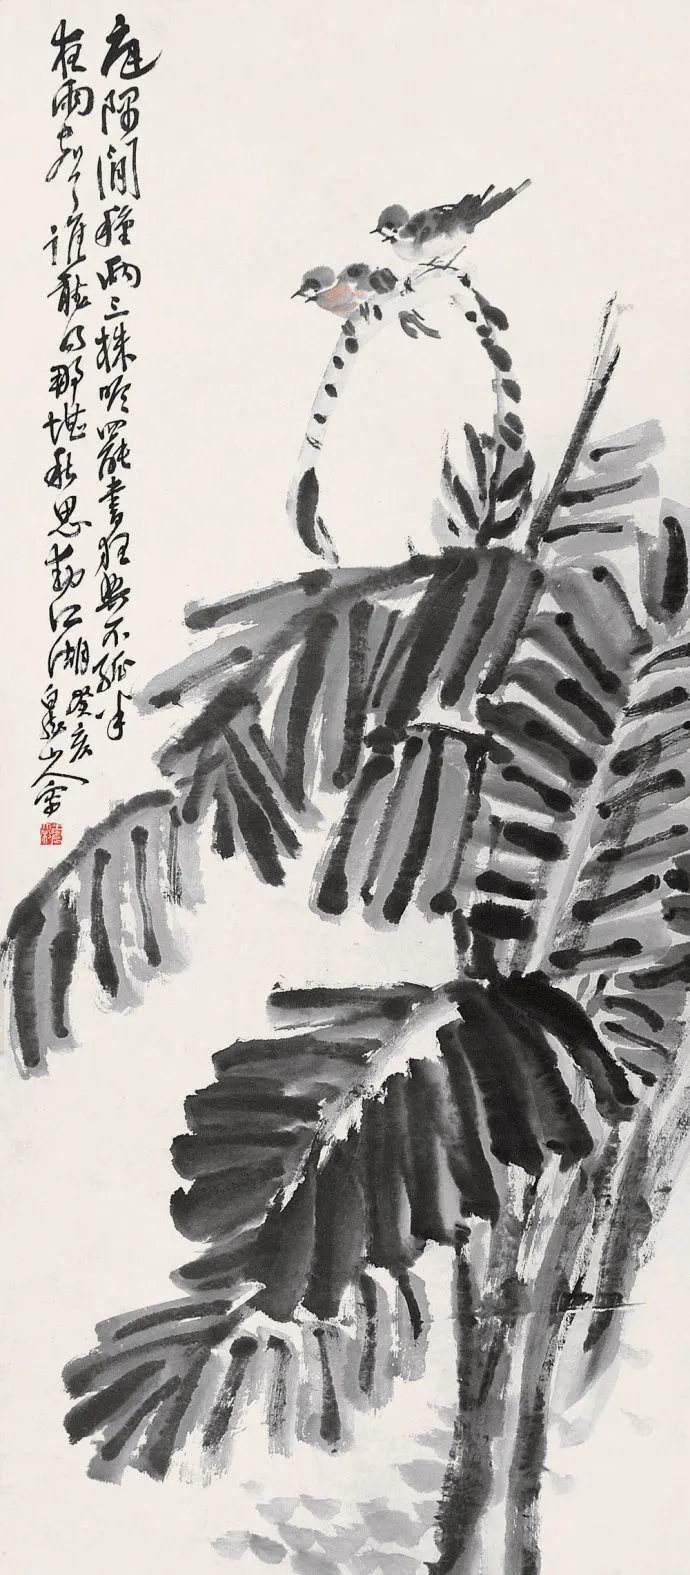 庭隅閒種兩三株吟罷書狂興不孤半
夜雨聲誰聽得那堪秋思動江湖癸亥
山人